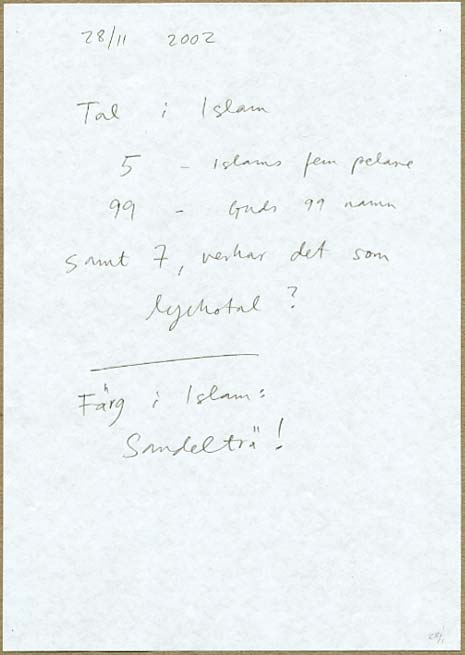 28/11 2002
Tal i Islam
5 - Islams fem pelare
99 - Guds 99 namn
samt 7, verkar det som
lyckotal?
Färg i Islam:
Sandelträ!